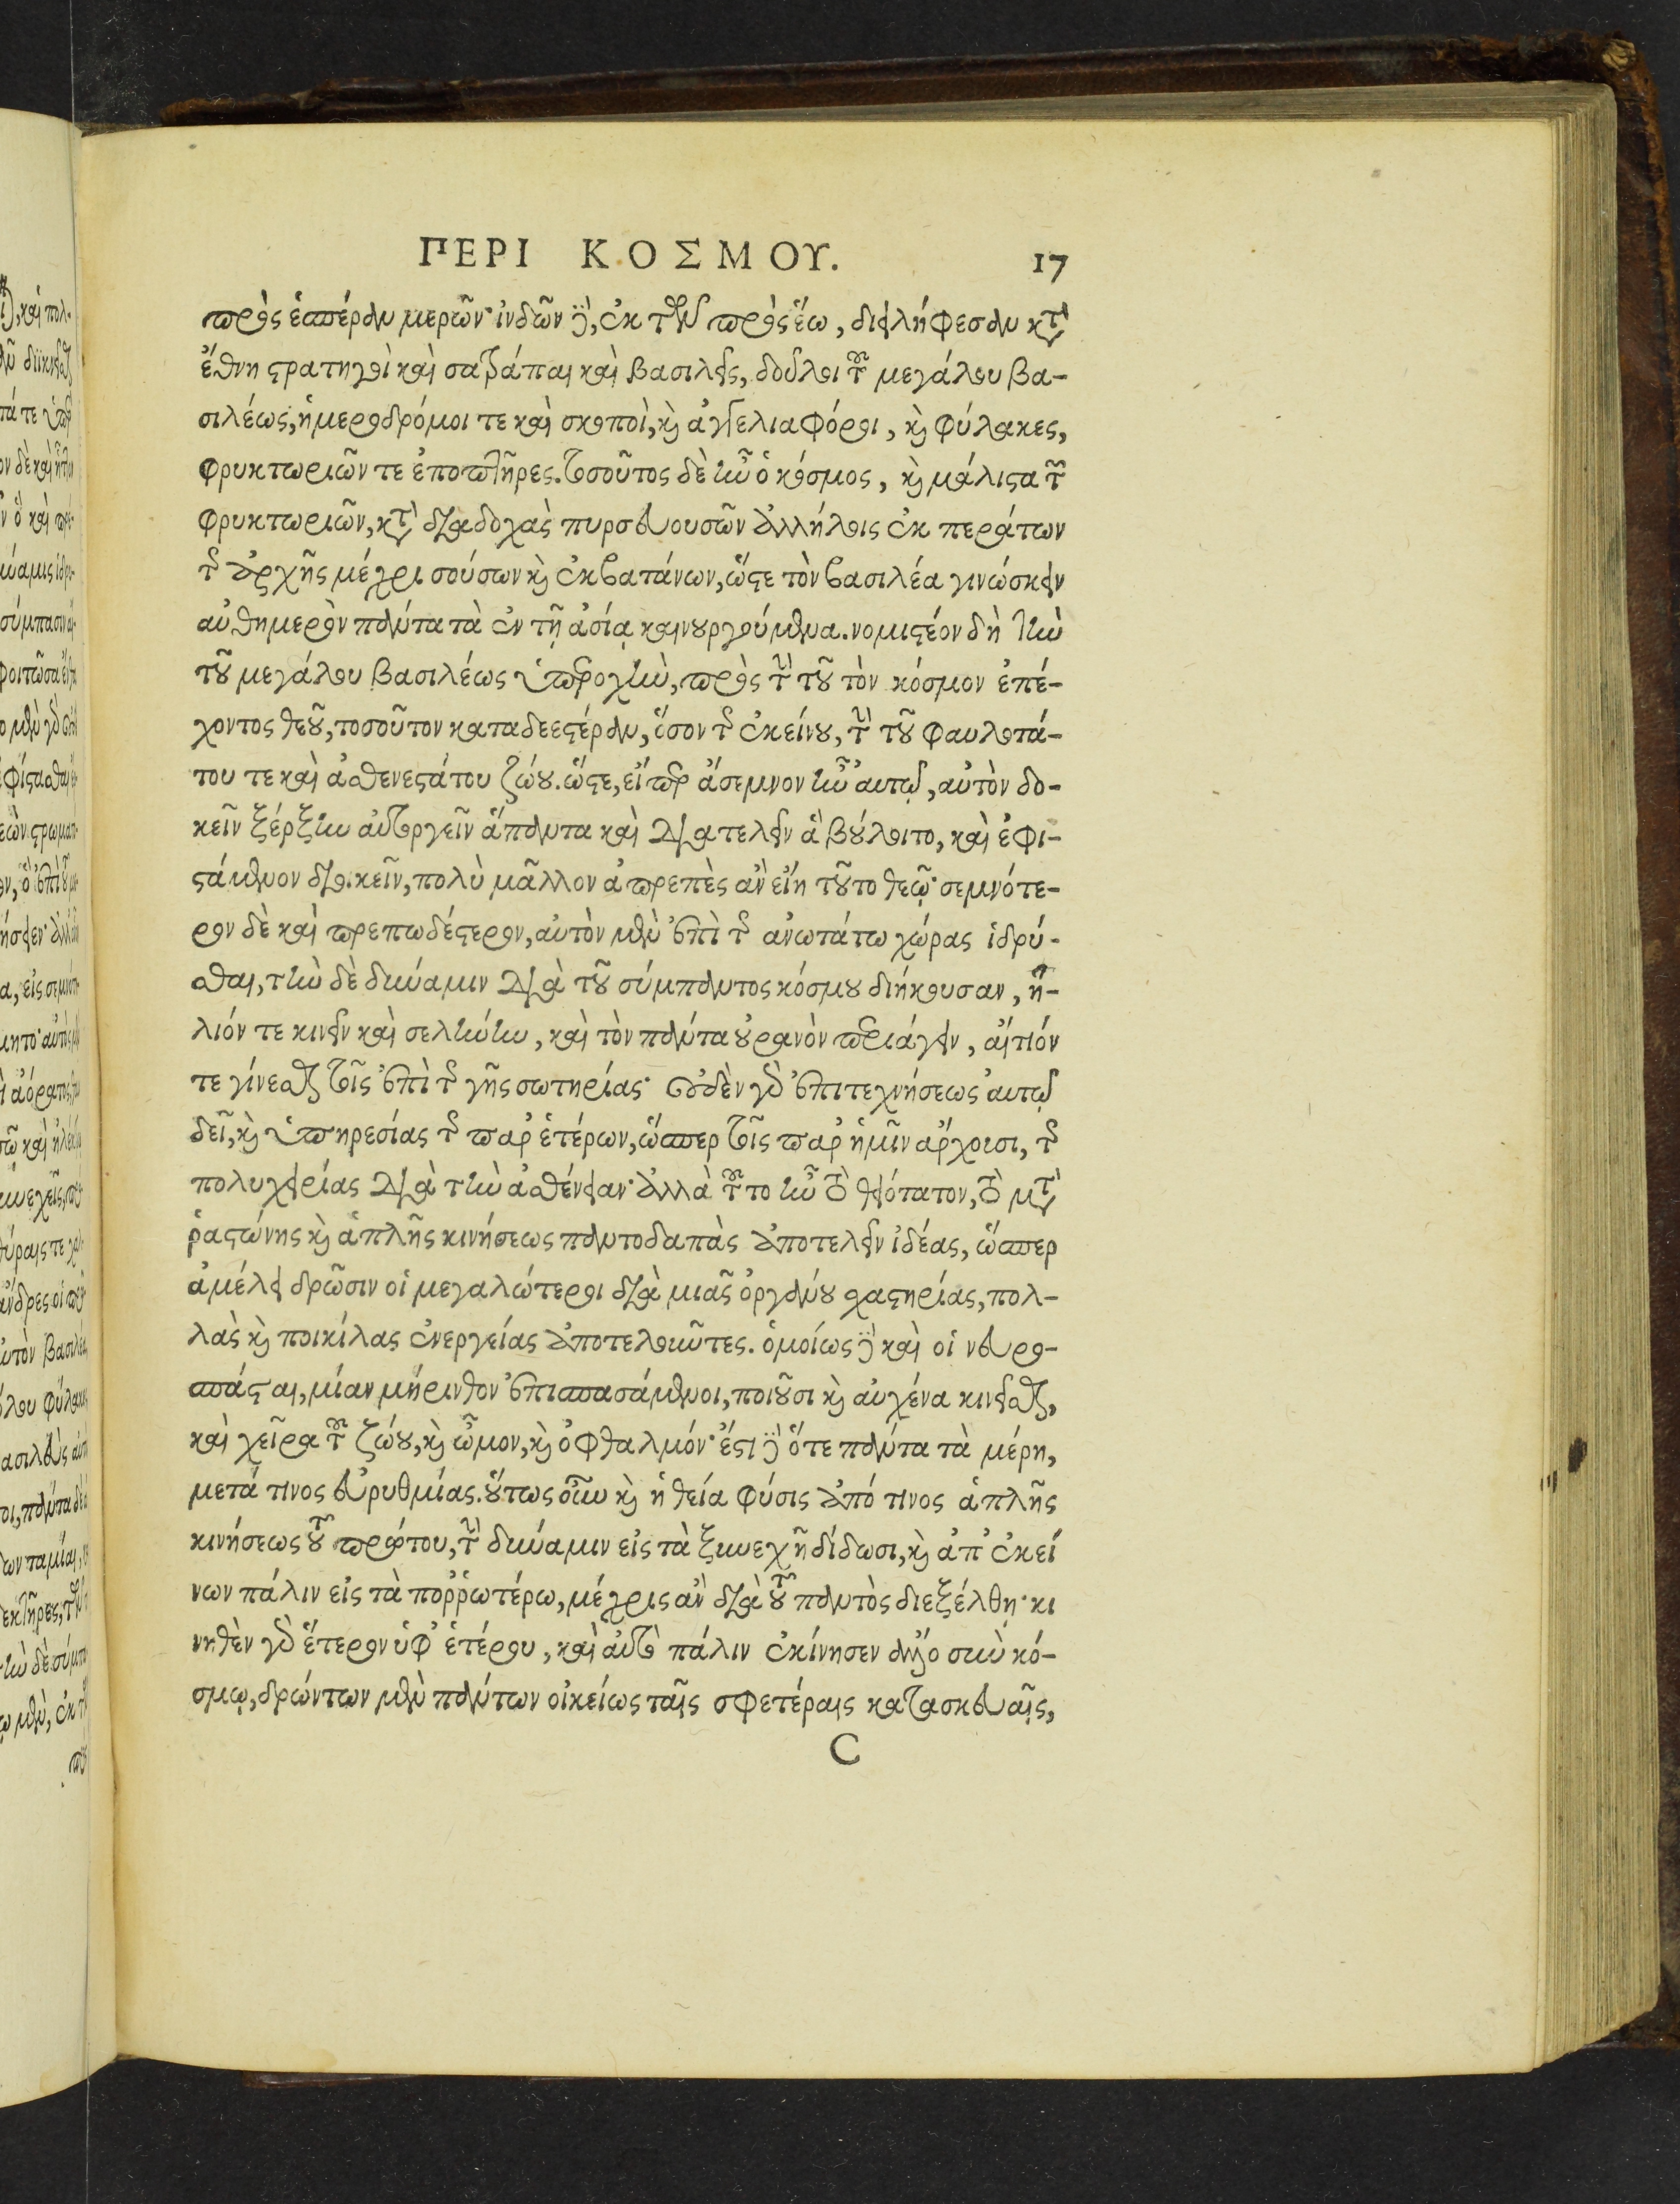 ΠΕΡΙ ΚΟΣΜΟΥ. 17
πρὸς ἑσπέραν μερῶν· ἰνδῶν δὲ, ἐκ τῶν πρὸς ἕω, διειλήφεσαν κατὰ
ἔθνη στρατηγοὶ καὶ σατράπαι καὶ βασιλεῖς, δοῦλοι τοῦ μεγάλου βα-
σιλέως, ἡμεροδρόμοι τε καὶ σκοποὶ, καὶ ἀγγελιαφόροι, καὶ φύλακες,
φρυκτωριῶν τε ἐποπτῆρες. τοσοῦτος δὲ ἦν ὁ κόσμος, καὶ μάλιστα τῶν
φρυκτωριῶν, κατὰ διαδοχὰς πυρσευουσῶν ἀλλήλοις ἐκ περάτων
τῆς ἀρχῆς μέχρι σούσων καὶ ἐκβατάνων, ὥστε τὸν βασιλέα γινώσκειν
αὐθημερὸν πάντα τὰ ἐν τῇ ἀσίᾳ καινουργούμενα. νομιστέον δὴ τὴν
τοῦ μεγάλου βασιλέως ὑπεροχὴν, πρὸς τὴν τοῦ τὸν κόσμον ἐπέ-
χοντος θεοῦ, τοσοῦτον καταδεεστέραν, ὅσον τῆς ἐκείνου, τὴν τοῦ φαυλοτά-
του τε καὶ ἀσθενεστάτου ζώου. ὥστε, εἴπερ ἄσεμνον ἦν αὐτῷ, αὐτὸν δο-
κεῖν ξέρξην αὐτουργεῖν ἅπαντα καὶ διατελεῖν ἃ βούλοιτο, καὶ ἐφι-
στάμενον διοικεῖν, πολὺ μᾶλλον ἀπρεπὲς ἂν εἴη τοῦτο θεῷ· σεμνότε-
ρον δὲ καὶ πρεπωδέστερον, αὐτὸν μὲν ἐπὶ τῆς ἀνωτάτω χώρας ἱδρύ-
σθαι, τὴν δὲ δύναμιν διὰ τοῦ σύμπαντος κόσμου διήκουσαν, ἥ-
λιόν τε κινεῖν καὶ σελήνην, καὶ τὸν πάντα οὐρανὸν περιάγειν, αἴτιόν
τε γίνεσθαι τοῖς ἐπὶ τῆς γῆς σωτηρίας· οὐδὲν γὰρ ἐπιτεχνήσεως αὐτῷ
δεῖ, καὶ ὑπηρεσίας τῆς παρ' ἑτέρων, ὥσπερ τοῖς παρ' ἡμῖν ἄρχουσι, τῆς
πολυχειρίας διὰ τὴν ἀσθένειαν· ἀλλὰ τοῦτο ἦν τὸ θειότατον, τὸ μετὰ
ῥαστώνης καὶ ἁπλῆς κινήσεως παντοδαπὰς ἀποτελεῖν ἰδέας, ὥσπερ
ἀμέλει δρῶσιν οἱ μεγαλώτεροι διὰ μιᾶς ὀργάνου χαστηρίας, πολ-
λὰς καὶ ποικίλας ἐνεργείας ἀποτελοῦντες. ὁμοίως δὲ καὶ οἱ νευρο-
σπάσται, μίαν μήρινθον ἐπισπασάμενοι, ποιοῦσι καὶ αὐχένα κινεῖσθαι,
καὶ χεῖρα τοῦ ζώου, καὶ ὦμον, καὶ ὀφθαλμόν· ἔστι δὲ ὅτε πάντα τὰ μέρη,
μετά τινος εὐρυθμίας. οὕτως οὖν καὶ ἡ θεία φύσις ἀπό τινος ἁπλῆς
κινήσεως τοῦ πρώτου, τὴν δύναμιν εἰς τὰ ξυνεχῆ δίδωσι, καὶ ἀπ' ἐκεί
νων πάλιν εἰς τὰ ποῤῥωτέρω, μέχρις ἂν διὰ τοῦ παντὸς διεξέλθῃ· κι
νηθὲν γὰρ ἕτερον ὑφ' ἑτέρου, καὶ αὐτὸ πάλιν ἐκίνησεν ἄλλο σὺν κό-
σμῳ, δρώντων μὲν πάντων οἰκείως ταῖς σφετέραις κατασκευαῖς,
C